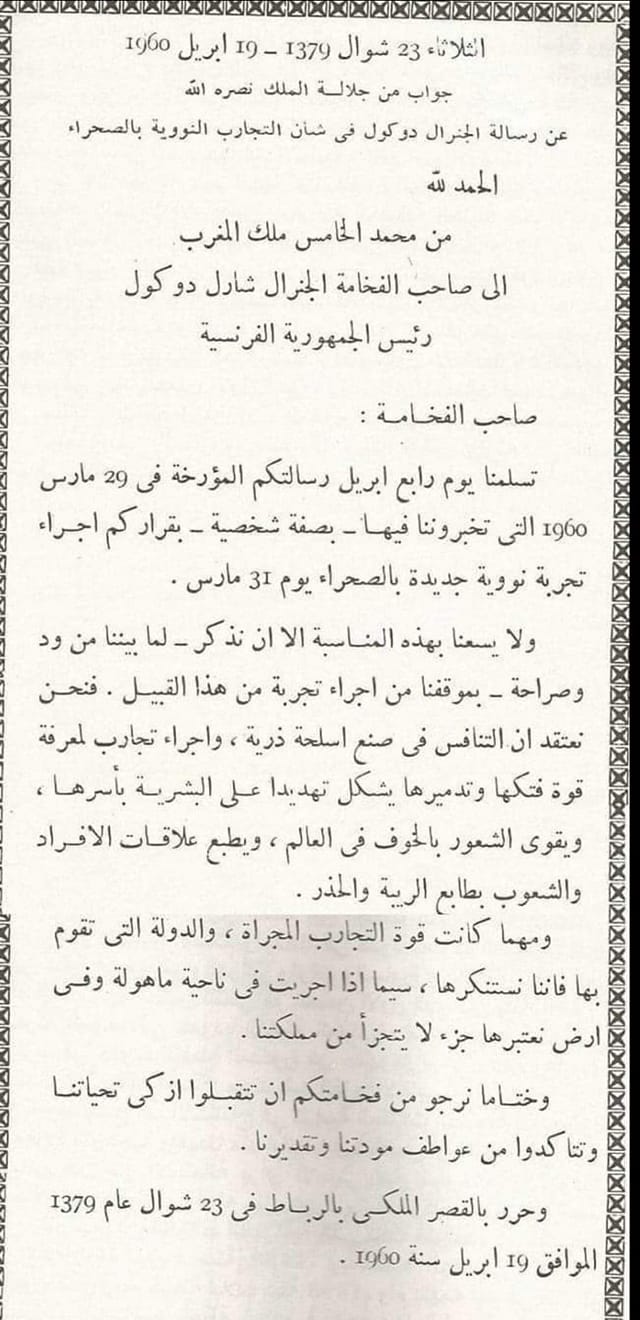 الثلاثاء 23 شوال 1379 ـ 19 ابريل 1960
جواب من جلالـة الملك نصره الله
عن رسالة الجنرال دوكول فى شأن التجارب النووية بالصحراء
الحمد لله
من محمد الخامس ملك المغرب
الى صاحب الفخامة الجنرال شارل دوكول
رئيس الجمهورية الفرنسية
صاحب الفخـامـة :
تسلمنا يوم رابع ابريل رسالتكم المؤرخة فى 29 مارس
1960 التى تخبروننا فيهـا ـ بصفة شخصية ـ بقراركم اجـراء
تجربة نووية جديدة بالصحراء يوم 31 مارس .
ولا يسعنا بهذه المنـاسبة الا ان نذكر ـ لما بيننا من ود
وصراحة ـ بموقفنا من اجراء تجربة من هذا القبيـل . فنحـن
نعتقد ان التنافس فى صنع اسلحة ذرية ، واجراء تجارب لمعرفة
قوة فتكها وتدميرها يشكل تهديدا علـى البشريـة بأسرهـا ،
ويقوى الشعور بالخوف فى العالم ، ويطبع علاقـات الافـراد
والشعوب بطابع الريبة والحذر .
ومهما كانت قوة التجارب المجراة ، والدولة التى تقوم
بها فاننا نستنكرها ، سيما اذا اجريت فى ناحية ماهولة وفـى
ارض نعتبرها جزء لا يتجزأ من مملكتنا .
وختـاما نرجو من فخـامتكم ان تتقبـلوا ازكى تحياتنـا
وتتأكدوا من عواطف مودتنا وتقديرنا .
وحرر بالقصر الملكـى بالربـاط فى 23 شوال عام 1379
الموافق 19 ابريل سنة 1960 .